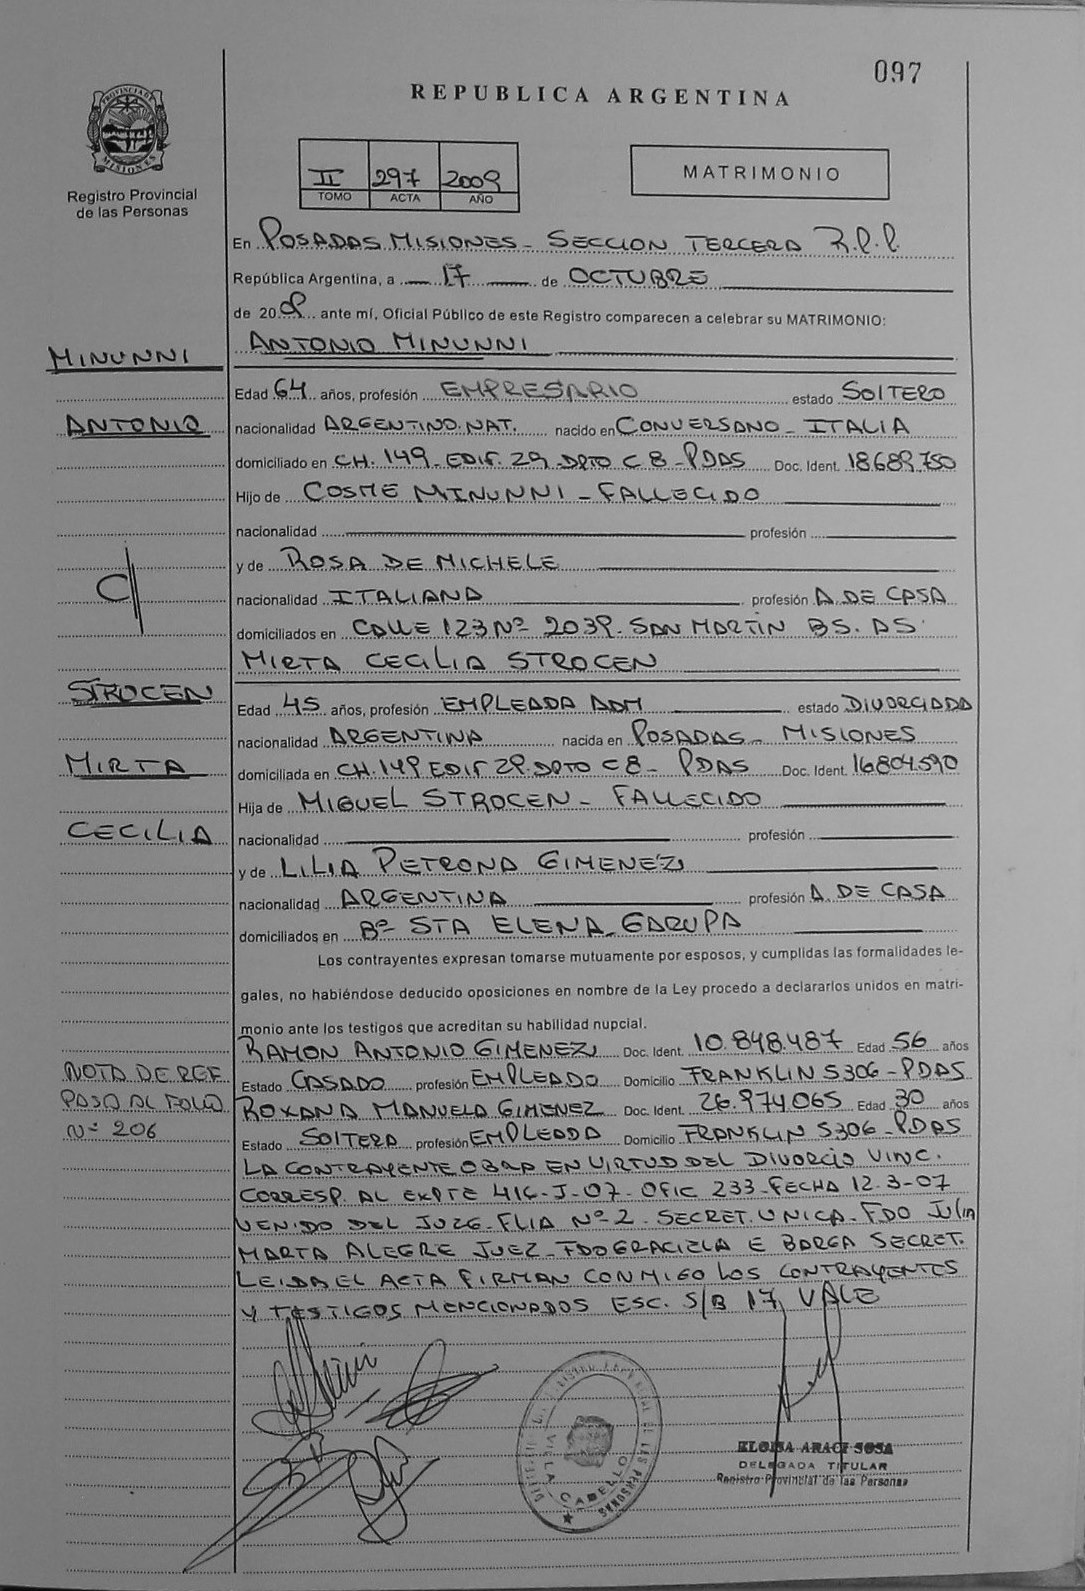 097
REPUBLICA ARGENTINA
PROVINCIA DE MISIONES
Registro Provincial
de las Personas
II 297 2009
TOMO ACTA AÑO
MATRIMONIO
En POSADAS MISIONES - SECCION TERCERA R.P.P.
República Argentina, a 17 de OCTUBRE
de 2009 ante mí, Oficial Público de este Registro comparecen a celebrar su MATRIMONIO:
ANTONIO MINUNNI
MINUNNI
Edad 64 años, profesión EMPRESARIO estado SOLTERO
ANTONIO
nacionalidad ARGENTINO.NAT. nacido en CONVERSANO - ITALIA
domiciliado en CH. 149 - EDIF. 29 - DPTO C 8 - PDAS Doc. Ident. 18.689.750
Hijo de COSME MINUNNI - FALLECIDO
nacionalidad profesión
y de ROSA DE MICHELE
C
nacionalidad ITALIANA profesión A. DE CASA
domiciliados en CALLE 123 Nº 2039 - SAN MARTIN BS. AS.
MIRTA CECILIA STROCEN
STROCEN
Edad 45 años, profesión EMPLEADA ADM estado DIVORCIADA
nacionalidad ARGENTINA nacida en POSADAS - MISIONES
MIRTA
domiciliada en CH. 149 EDIF 29. DPTO C 8 - PDAS Doc. Ident. 16.804.590
Hija de MIGUEL STROCEN - FALLECIDO
CECILIA
nacionalidad profesión
y de LILIA PETRONA GIMENEZ
nacionalidad ARGENTINA profesión A. DE CASA
domiciliados en Bº STA ELENA - GARUPA
Los contrayentes expresan tomarse mutuamente por esposos, y cumplidas las formalidades le-
gales, no habiéndose deducido oposiciones en nombre de la Ley procedo a declararlos unidos en matri-
monio ante los testigos que acreditan su habilidad nupcial.
RAMON ANTONIO GIMENEZ Doc. Ident. 10.848.487 Edad 56 años
NOTA DE REF
Estado CASADO profesión EMPLEADO Domicilio FRANKLIN 5306 - PDAS
PASA AL FOLIO
ROXANA MANUELA GIMENEZ Doc. Ident. 26.974.065 Edad 30 años
Nº 206
Estado SOLTERA profesión EMPLEADA Domicilio FRANKLIN 5306 - PDAS
LA CONTRAYENTE OBRA EN VIRTUD DEL DIVORCIO VINC.
CORRESP. AL EXPTE 416 - J - 07 - OFIC 233 - FECHA 12.3-07
VENIDO DEL JUZG - FLIA Nº 2. SECRET. UNICA - FDO JULIA
MARTA ALEGRE JUEZ - FDO GRACIELA E BARGA SECRET.
LEIDA EL ACTA FIRMAN CONMIGO LOS CONTRAYENTES
Y TESTIGOS MENCIONADOS ESC. S/B 17, VALE
VILLA CABELLO
ELOISA ARACI SOSA
DELEGADA TITULAR
Registro Provincial de las Personas